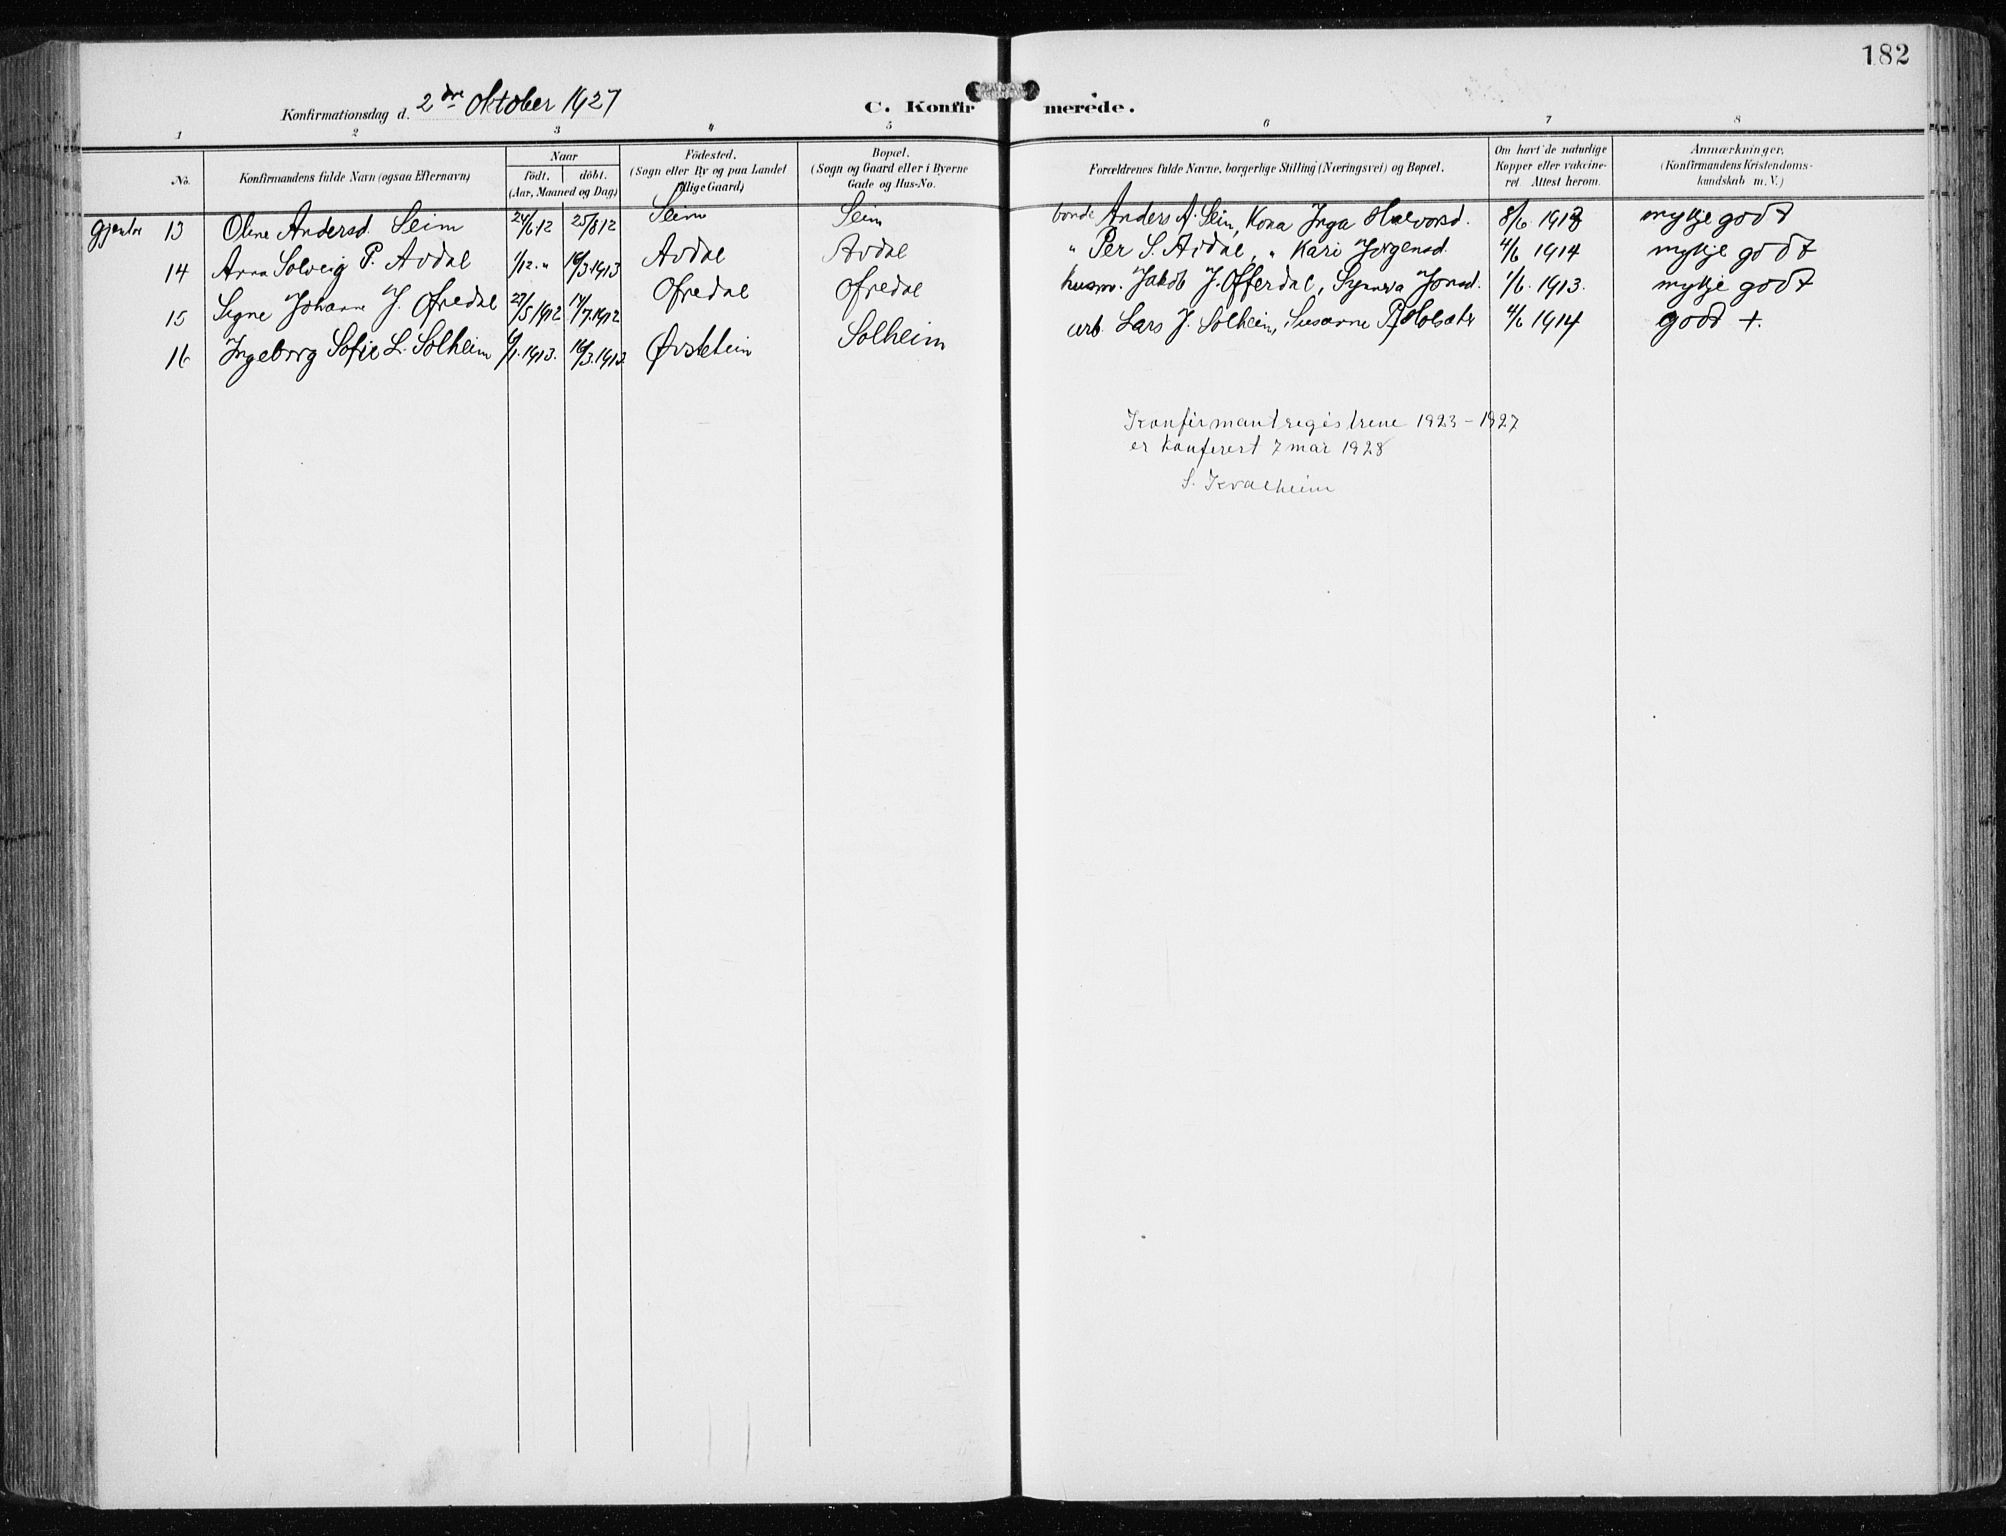 182
Konfirmationsdag d. 2dre Oktober 1927 C. Konfirmerede.
1 2 3 4 5 6 7 8
No. Konfirmandens fulde Navn (ogsaa Efternavn) Naar födt. döbt. (Aar, Maaned og Dag) Födested. (Sogn eller By og paa Landet tillige Gaard) Bopæl. (Sogn og Gaard eller i Byerne Gade og Hus-No. Forældrenes fulde Navne, borgerlige Stilling (Næringsvei) og Bopæl. Om havt de naturlige Kopper eller vakcineret. Attest herom. Anmærkninger, (Konfirmandens Kristendomskundskab m. V.)
gjentor 13 Oline Andersd. Seim 24/6 12 25/8 12 Seim Seim bonde Anders A. Seim, Kona Inga Halvorsd. 8/6 1913 mykje godt
14 Anna Solveig P. Avdal 1/12 „ 16/3 1913 Avdal Avdal „ Per S. Avdal, „ Kari Jørgensd. 4/6 1914 mykje godt
15 Signe Johanna J. Ofredal 27/5 1912 14/7 1912 Ofredal Ofredal husm. Jakob J. Offerdal, Synneva Jonsd. 1/6. 1913. mykje godt
16 Ingeborg Sofie L. Solheim 6/1. 1913. 16/3. 1913 Øvstetun Solheim arb. Lars J. Solheim, Susanne P. Holsæter 4/6 1914 godt +.
Konfirmantregistrene 1923-1927
er konferert 7 mai 1928
S. Kvalheim